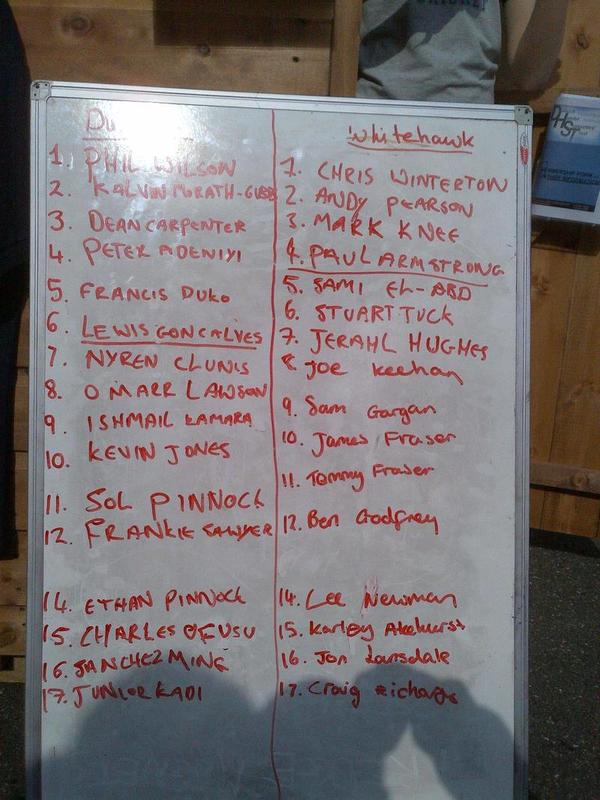 Du
1. PHIL WILSON
2. KALVIN MORATH-GIBBS
3. DEAN CARPENTER
4. PETER ADENIYI
5. FRANCIS DUKU
6. LEWIS GONCALVES
7. NYREN CLUNIS
8. OMARR LAWSON
9. ISHMAIL KAMARA
10. KEVIN JONES
11. SOL PINNOCK
12. FRANKIE SAWYER
14. ETHAN PINNOCK
15. CHARLES OFUSU
16. SANCHEZ MING
17. JUNIOR KADI
Whitehawk
1. CHRIS WINTERTON
2. ANDY PEARSON
3. MARK KNEE
4. PAUL ARMSTRONG
5. SAMI EL-ABD
6. STUART TUCK
7. JERAHL HUGHES
8. Joe Keehan
9. Sam Gargan
10. James Fraser
11. Tommy Fraser
12. Ben Godfrey
14. Lee Newman
15. Karley Akehurst
16. Jon Lansdale
17. Craig Richards